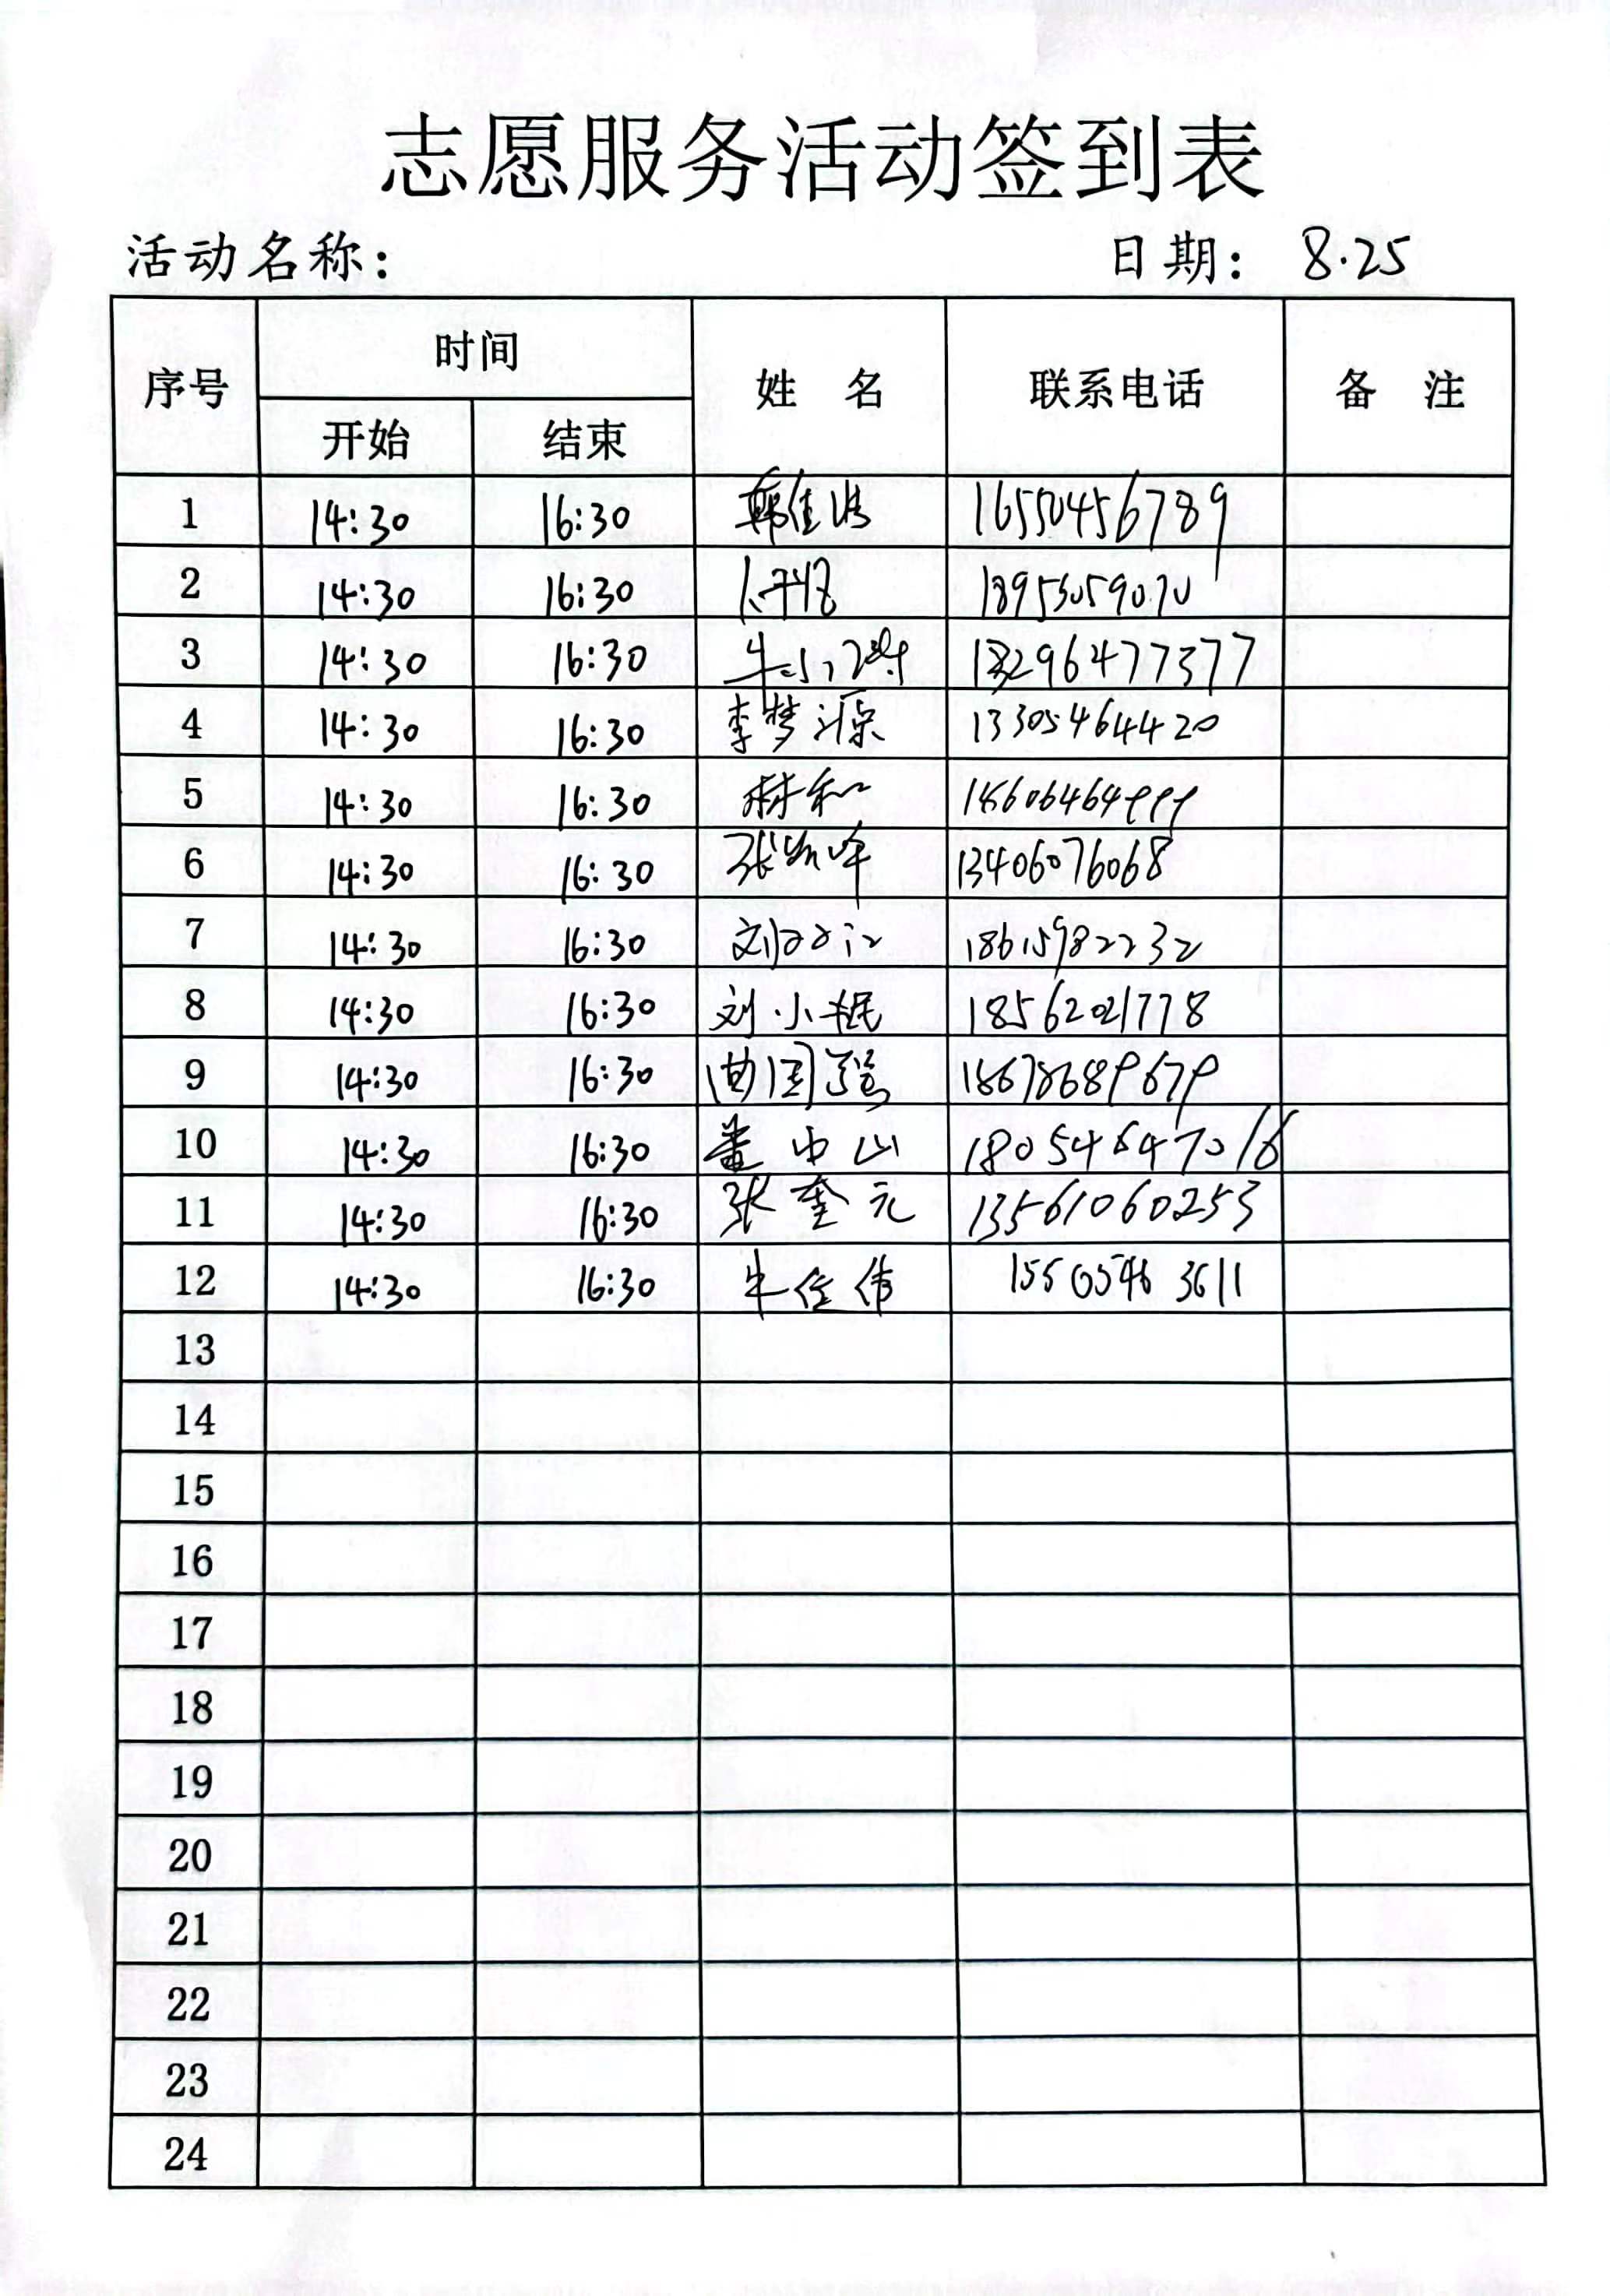 志愿服务活动签到表
活动名称： 日期： 8.25
序号 时间 姓 名 联系电话 备 注
开始 结束
1 14:30 16:30 韩佳 16550456789
2 14:30 16:30
3 14:30 16:30 牛小 13296477377
4 14:30 16:30 李梦源 13305464420
5 14:30 16:30 林和 18606464999
6 14:30 16:30 张 峰 13406076068
7 14:30 16:30 刘 江 18615982232
8 14:30 16:30 刘小 18562021778
9 14:30 16:30 曲国强 18678689679
10 14:30 16:30 董中山 18054647016
11 14:30 16:30 张奎元 13561060253
12 14:30 16:30 牛 伟 15505463611
13
14
15
16
17
18
19
20
21
22
23
24